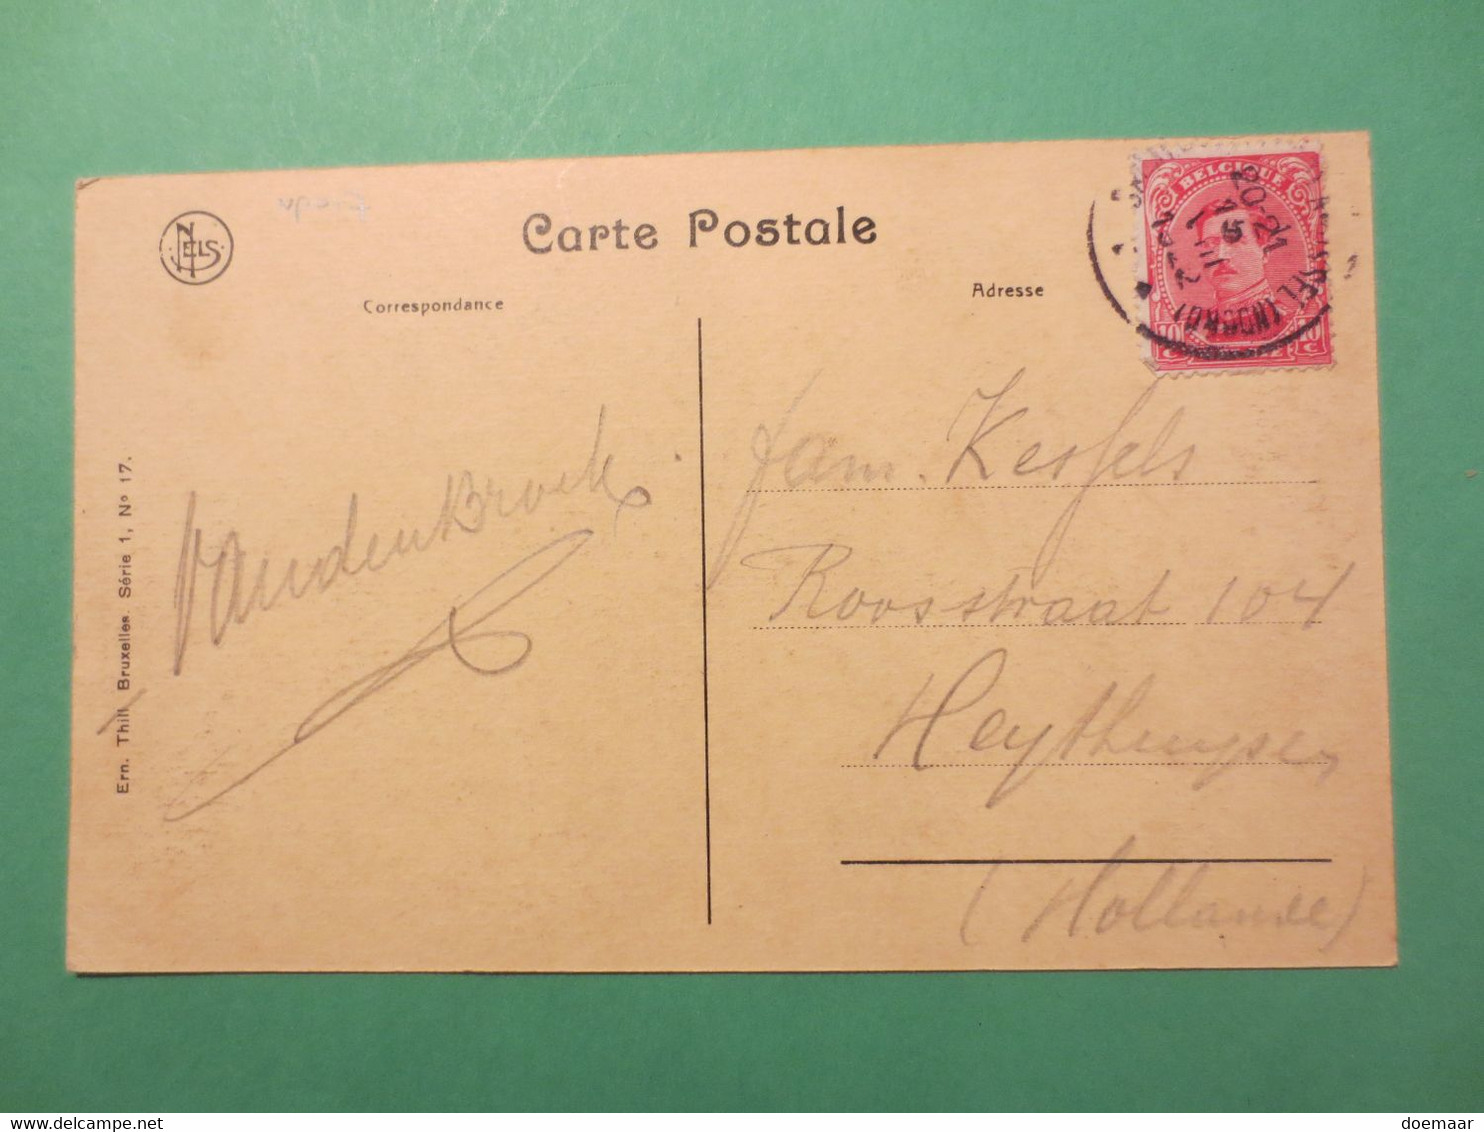 NELS
Carte Postale
Correspondance
Adresse
BELGIQUE
10 C
10 C
20-21
(NOORD)
Ern. Thill Bruxelles. Série 1, Nº 17.
Vandenbroek
Fam. Kessels
Roosstraat 104
Heythuysen
(Hollande)
delcampe.net
doemaar